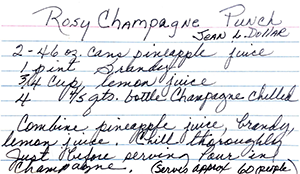 Rosy Champagne Punch
Jean L. Dollar
2-46 oz. cans pineapple juice
1 pint Brandy
3/4 Cup lemon juice
4 4/5 qts. bottle Champagne chilled
Combine pineapple juice, brandy,
lemon juice. Chill thoroughly
Just before serving Pour in
Champagne. (Serves approx 60 people)